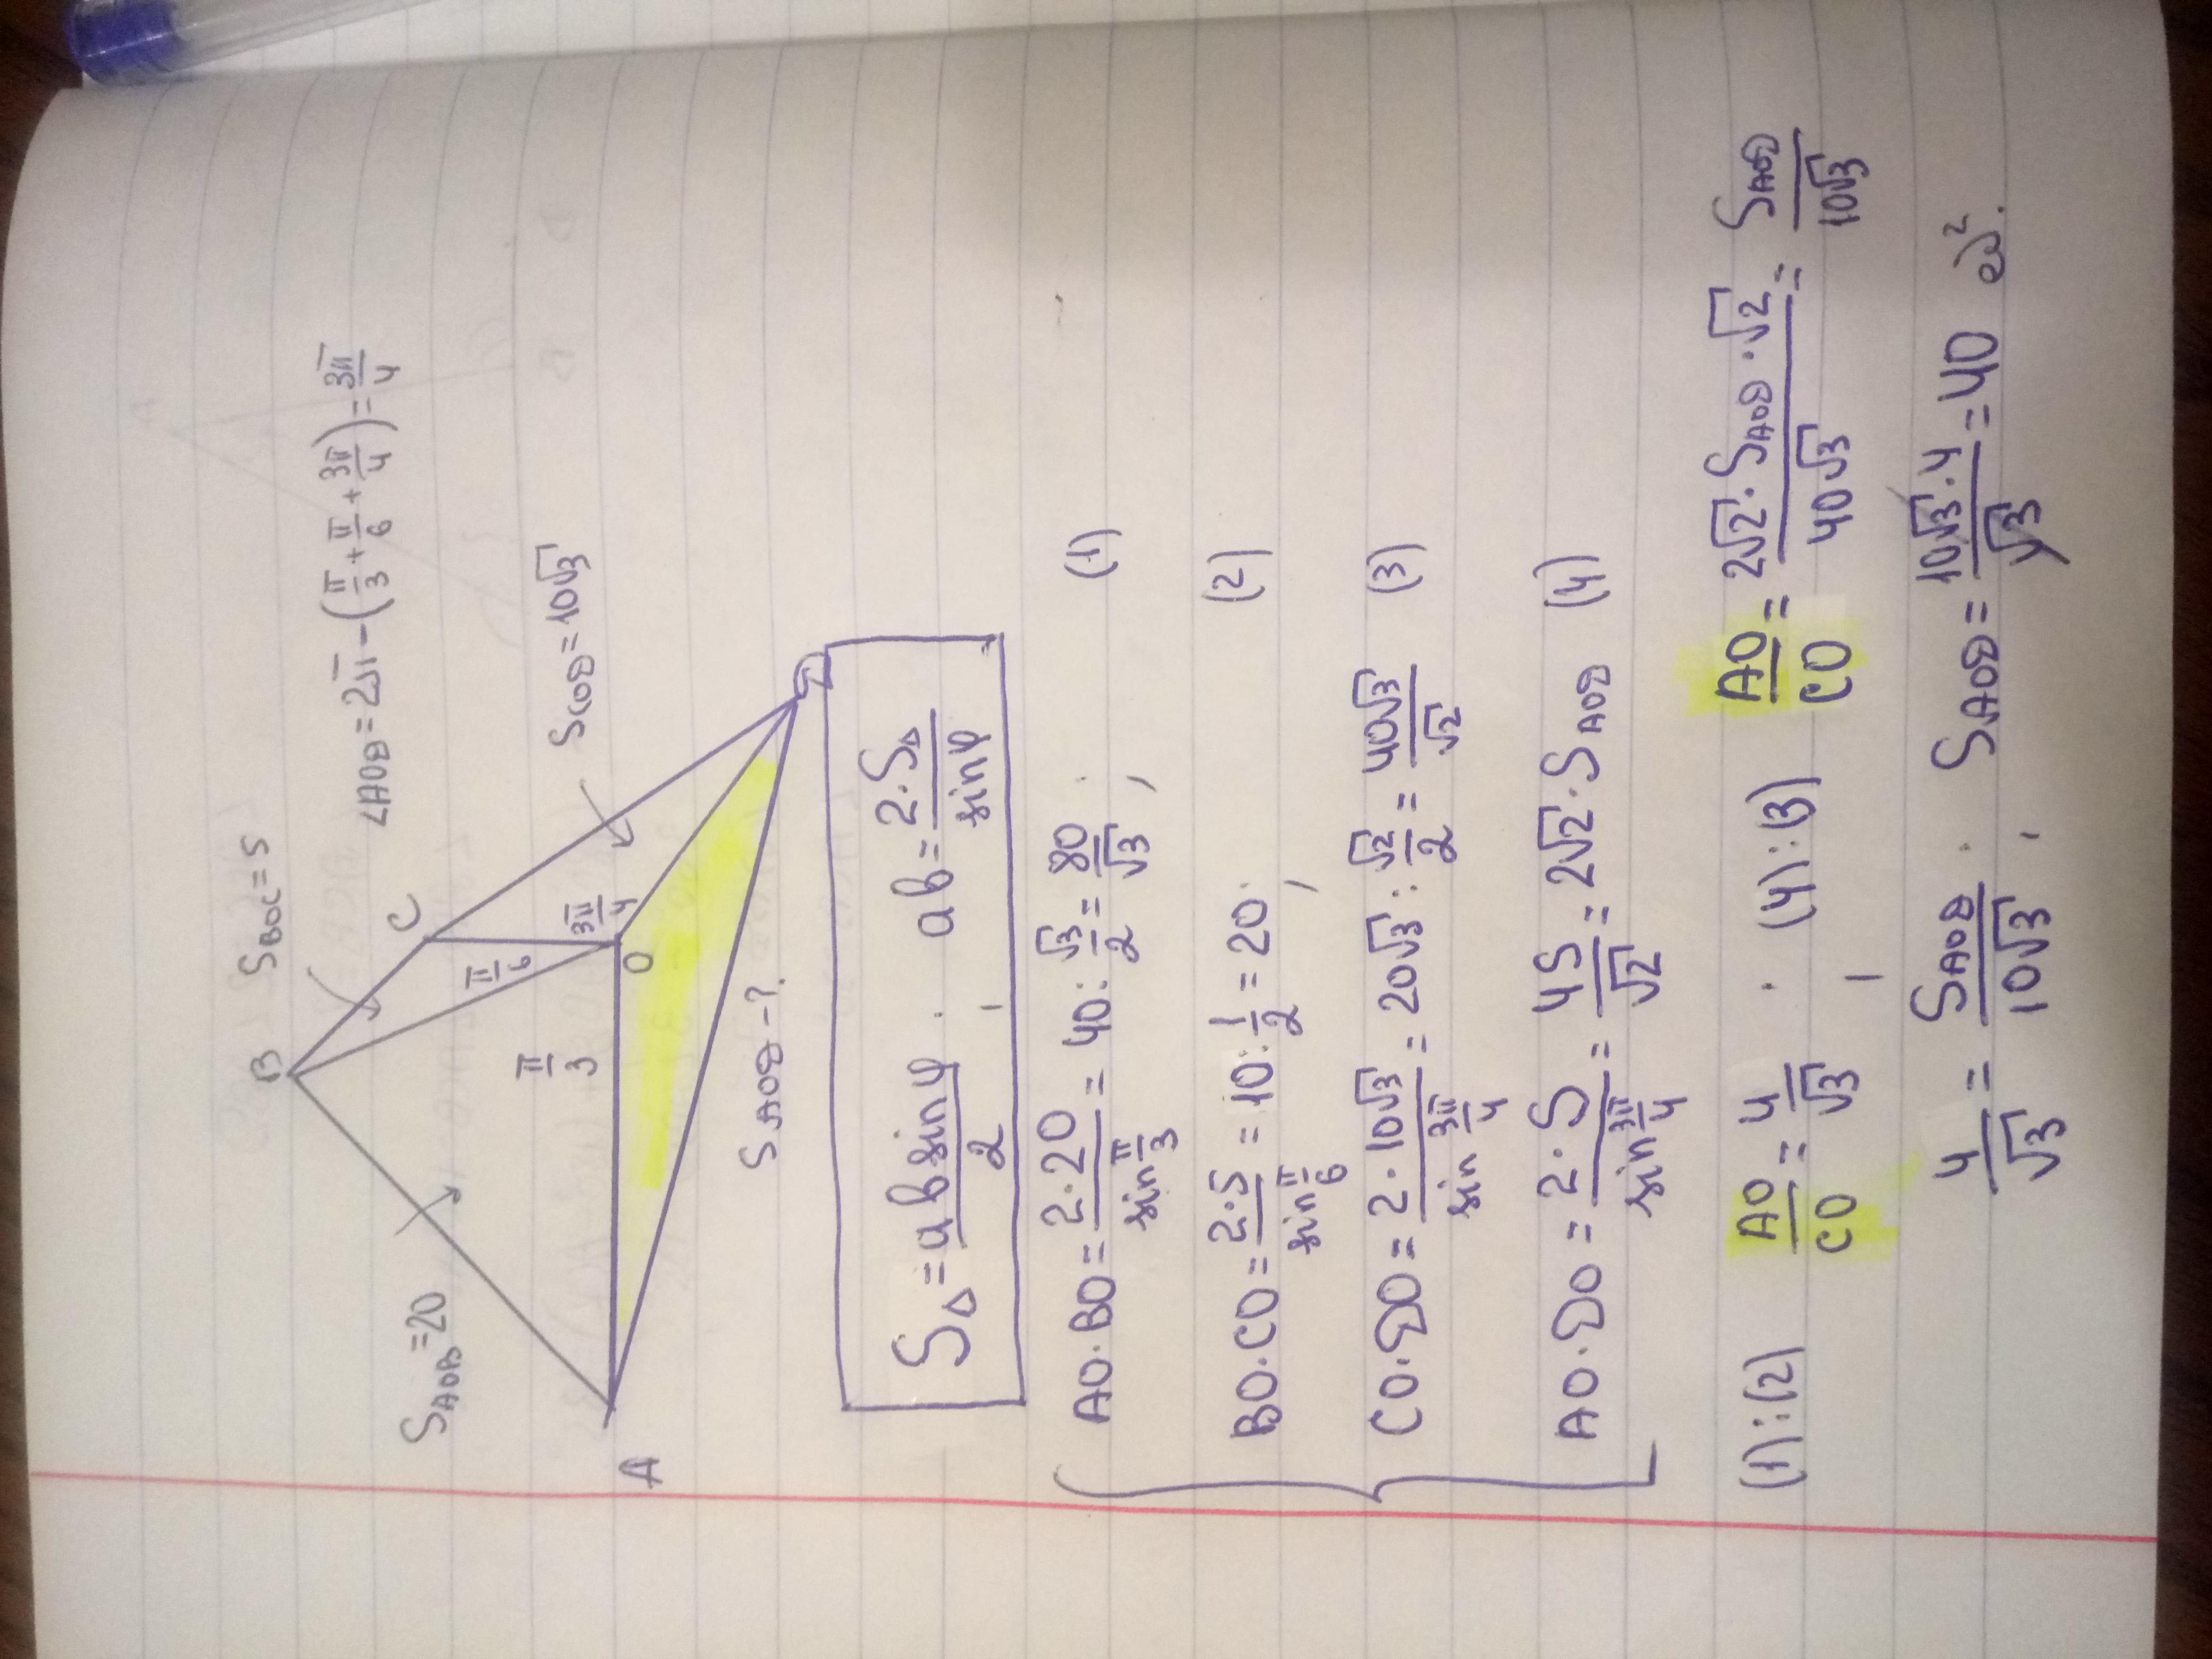 B
S_BOC=5
∠AOD=2π-(π/3+π/6+3π/4)=3π/4
S_AOB=20
C
S_COD=10√3
π/3
π/6
3π/4
A
O
D
S_AOD-?
S_Δ=ab sinφ/2, ab=2·S_Δ/sinφ
AO·BO=2·20/sin π/3=40:√3/2=80/√3, (1)
BO·CO=2·5/sin π/6=10:1/2=20, (2)
CO·DO=2·10√3/sin 3π/4=20√3:√2/2=40√3/√2 (3)
AO·DO=2·S/sin 3π/4=4S/√2=2√2·S_AOD (4)
(1):(2) AO/CO=4/√3, (4):(3) AO/CO=2√2·S_AOD·√2/40√3=S_AOD/10√3
4/√3=S_AOD/10√3, S_AOD=10√3·4/√3=40